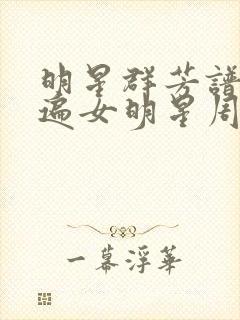 明星群芳譜
遍女明星周
一幕浮華